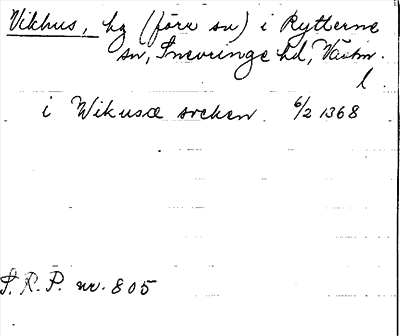 Vikhus, hg (förr sn) i Rytterne
sn, Snevringe hd, Västm.
l.
i Wikusæ socken. 6/2 1368
S.R.P. nr. 805